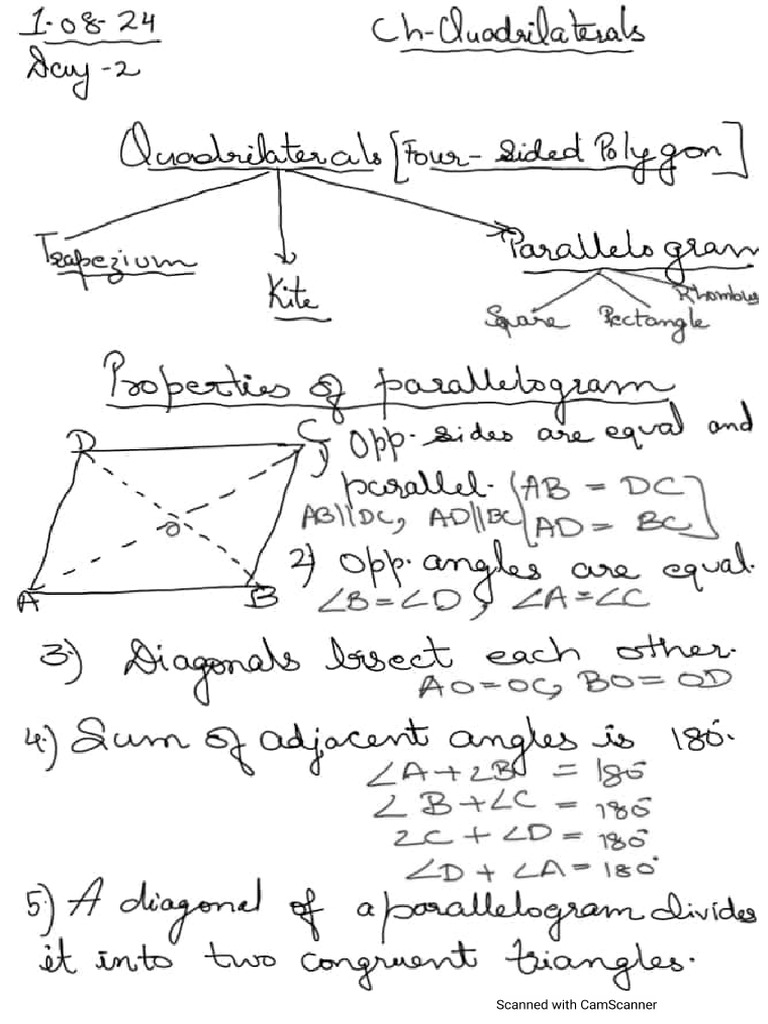 1-08-24
Ch-Quadrilaterals
Day-2
Quadrilaterals [Four-Sided Polygon]
Trapezium
Kite
Parallelogram
Square Rectangle Rhombus
Properties of parallelogram
D C
O
A B
1) Opp. sides are equal and
parallel. [AB = DC]
AB||DC, AD||BC [AD = BC]
2) Opp. angles are equal.
∠B=∠D, ∠A=∠C
3) Diagonals bisect each other.
AO=OC, BO=OD
4) Sum of adjacent angles is 180°.
∠A+∠B = 180°
∠B+∠C = 180°
∠C+∠D = 180°
∠D+∠A=180°
5) A diagonal of a parallelogram divides
it into two congruent triangles.
Scanned with CamScanner